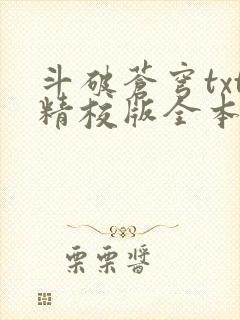 斗破苍穹txt
精校版全本
栗栗醬